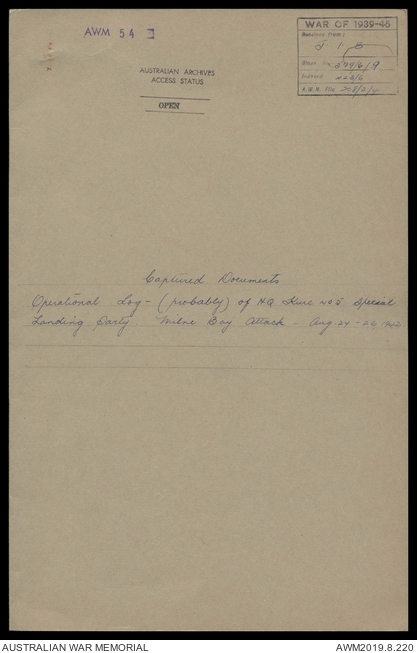 AWM 54
WAR OF 1939-45
Received from:
J. I. B
AUSTRALIAN ARCHIVES
ACCESS STATUS
OPEN
A.W.M. File
Captured Documents
Operational Log - (probably) of HQ Kure No 5 Special
Landing Party. Milne Bay Attack - Aug. 24-26, 1942
AUSTRALIAN WAR MEMORIAL
AWM2019.8.220